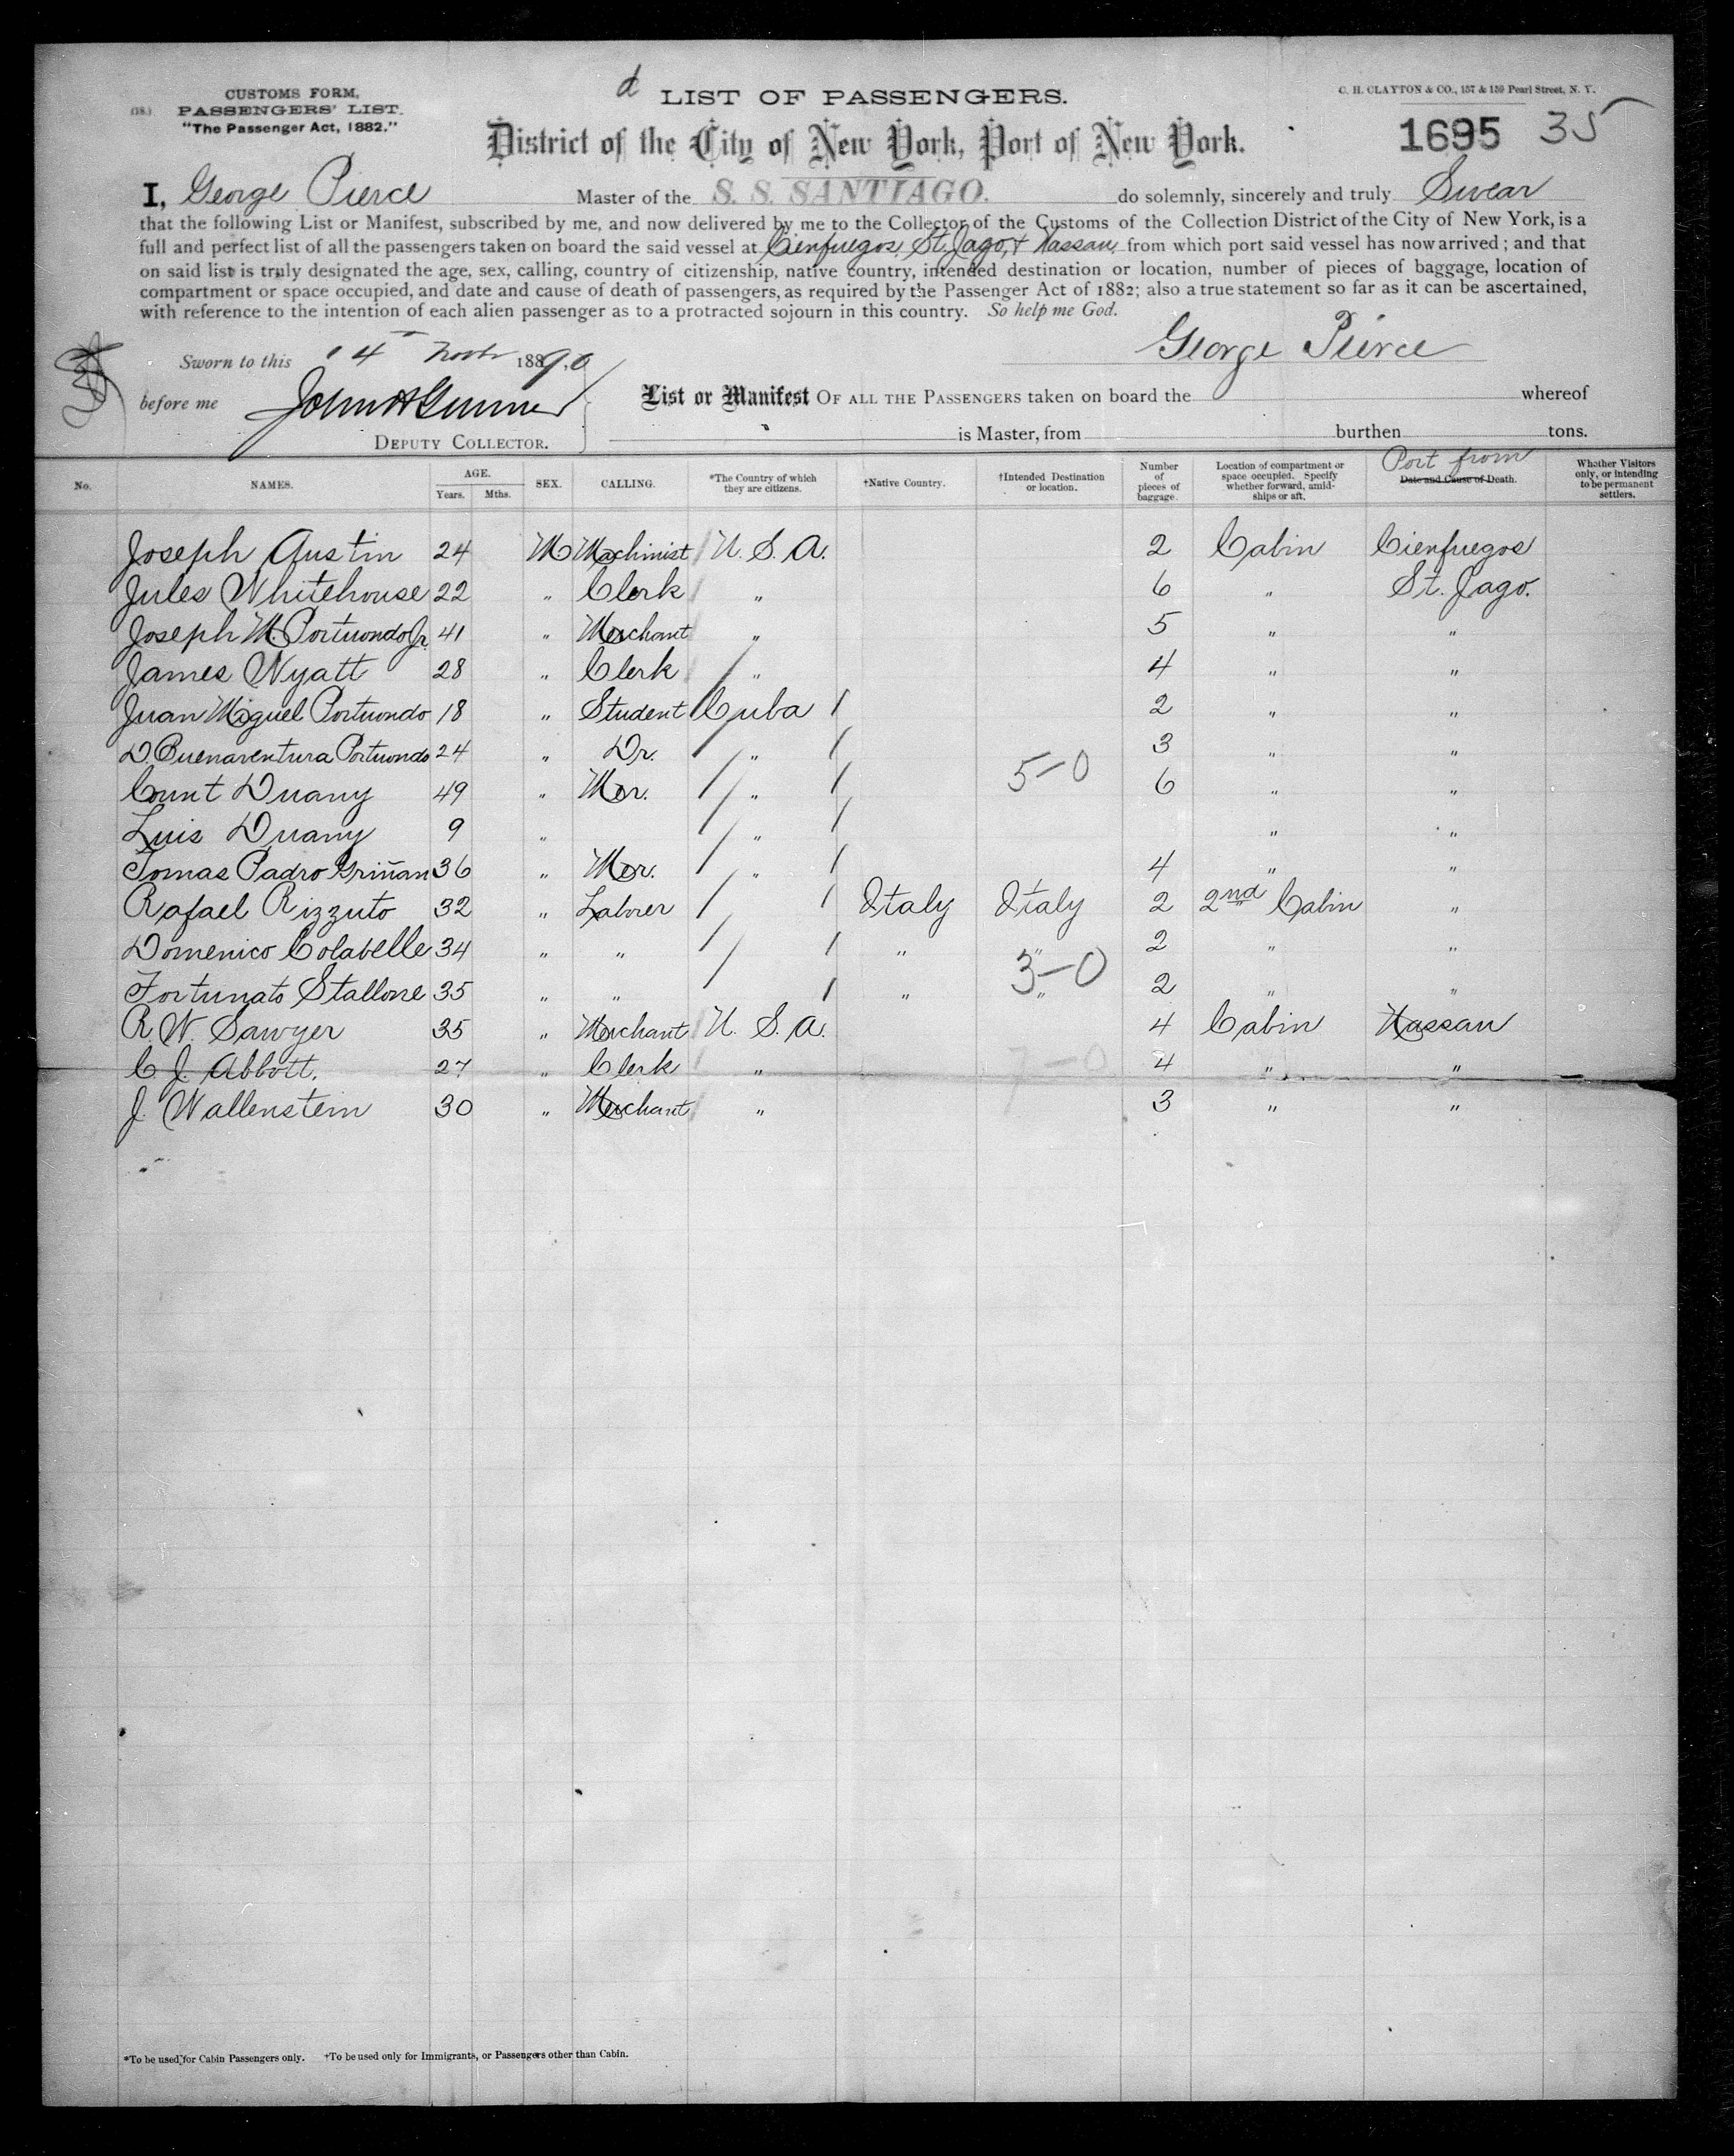 d LIST OF PASSENGERS.
CUSTOMS FORM,
(18.) PASSENGERS' LIST.
"The Passenger Act, 1882."
C. H. CLAYTON & CO., 157 & 159 Pearl Street, N. Y.
District of the City of New York, Port of New York.
1695 35
I, George Pierce Master of the S. S. SANTIAGO. do solemnly, sincerely and truly Swear
that the following List or Manifest, subscribed by me, and now delivered by me to the Collector of the Customs of the Collection District of the City of New York, is a
full and perfect list of all the passengers taken on board the said vessel at Cienfuegos, St. Jago, & Nassau from which port said vessel has now arrived; and that
on said list is truly designated the age, sex, calling, country of citizenship, native country, intended destination or location, number of pieces of baggage, location of
compartment or space occupied, and date and cause of death of passengers, as required by the Passenger Act of 1882; also a true statement so far as it can be ascertained,
with reference to the intention of each alien passenger as to a protracted sojourn in this country. So help me God.
George Pierce
Sworn to this 4 1890
before me
DEPUTY COLLECTOR.
List or Manifest OF ALL THE PASSENGERS taken on board the whereof
is Master, from burthen tons.
No. NAMES. AGE. Years. Mths. SEX. CALLING. *The Country of which they are citizens. †Native Country. †Intended Destination or location. Number of pieces of baggage. Location of compartment or space occupied. Specify whether forward, amidships or aft. Port from Date and Cause of Death. Whether Visitors only, or intending to be permanent settlers.
Joseph Austin 24 M Machinist U. S. A. 2 Cabin Cienfuegos
Jules Whitehouse 22 " Clerk " 6 " St. Jago.
Joseph M. Portuondo Jr. 41 " Merchant " 5 " "
James Wyatt 28 " Clerk " 4 " "
Juan Miguel Portuondo 18 " Student Cuba 2 " "
D. Buenaventura Portuondo 24 " Dr. " 3 " "
Count Duany 49 " Mer. " 5-0 6 " "
Luis Duany 9 " " " "
Tomas Padro Griñan 36 " Mer. " 4 " "
Rafael Rizzuto 32 " Laborer Italy Italy 2 2nd Cabin "
Domenico Colabelle 34 " " " " 2 " "
Fortunato Stallone 35 " " " 3-0 " 2 " "
R. W. Sawyer 35 " Merchant U. S. A. 4 Cabin Nassau
C. J. Abbott. 27 " Clerk " 7-0 4 " "
J. Wallenstein 30 " Merchant " 3 " "
*To be used for Cabin Passengers only. †To be used only for Immigrants, or Passengers other than Cabin.